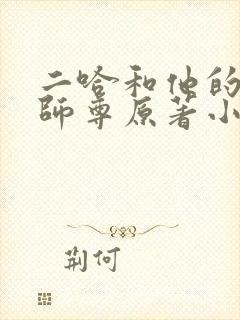 二哈和他的
師尊原著小
荆何